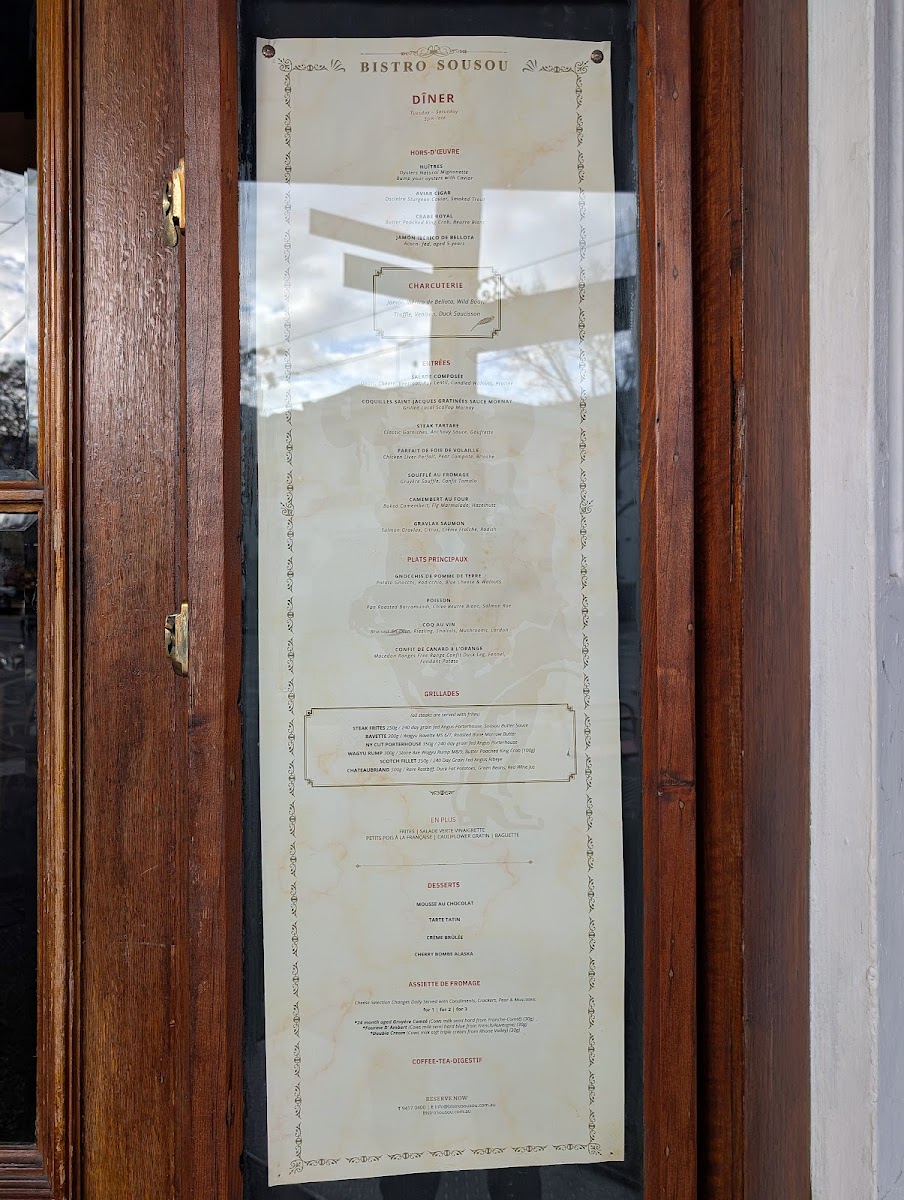 BISTRO SOUSOU
DÎNER
Tuesday - Saturday
5pm-late
HORS-D'ŒUVRE
HUÎTRES
Oysters Natural Mignonette
Bump your oysters with Caviar
AVIAR CIGAR
Oscietra Sturgeon Caviar, Smoked Trout
CRABE ROYAL
Butter Poached King Crab, Beurre Blanc
JAMÓN IBÉRICO DE BELLOTA
Acorn-fed, aged 5 years
CHARCUTERIE
Jamón Ibérico de Bellota, Wild Boar,
Truffle, Venison, Duck Saucisson
ENTRÉES
SALADE COMPOSÉE
Chèvre, Beetroot, Puy Lentil, Candied Walnuts,
COQUILLES SAINT-JACQUES GRATINÉES SAUCE MORNAY
Grilled Local Scallop Mornay
STEAK TARTARE
Classic Garnishes, Anchovy Sauce, Gaufrette
PARFAIT DE FOIE DE VOLAILLE
Chicken Liver Parfait, Pear Compote, Brioche
SOUFFLÉ AU FROMAGE
Gruyère Soufflé, Confit Tomato
CAMEMBERT AU FOUR
Baked Camembert, Fig Marmalade, Hazelnuts
GRAVLAX SAUMON
Salmon Gravlax, Citrus, Crème Fraîche, Radish
PLATS PRINCIPAUX
GNOCCHIS DE POMME DE TERRE
Potato Gnocchi, Radicchio, Blue Cheese & Walnuts
POISSON
Pan Roasted Barramundi, Chive Beurre Blanc, Salmon Roe
COQ AU VIN
Braised Chicken, Riesling, Shallots, Mushrooms, Lardon
CONFIT DE CANARD à L'ORANGE
Macedon Ranges Free Range Confit Duck Leg, Fennel,
Fondant Potato
GRILLADES
(all steaks are served with frites)
STEAK FRITES 250g / 240 day grain fed Angus Porterhouse, Sousou Butter Sauce
BAVETTE 300g / Wagyu Bavette MS 6/7, Roasted Bone Marrow Butter
NY CUT PORTERHOUSE 350g / 240 day grain fed Angus Porterhouse
WAGYU RUMP 300g / Stone Axe Wagyu Rump MB/9, Butter Poached King Crab (100g)
SCOTCH FILLET 350g / 240 Day Grain Fed Angus Ribeye
CHATEAUBRIAND 500g / Rare Rastbiff, Duck Fat Potatoes, Green Beans, Red Wine Jus
EN PLUS
FRITES | SALADE VERTE VINAIGRETTE
PETITS POIS À LA FRANÇAISE | CAULIFLOWER GRATIN | BAGUETTE
DESSERTS
MOUSSE AU CHOCOLAT
TARTE TATIN
CRÈME BRÛLÉE
CHERRY BOMBE ALASKA
ASSIETTE DE FROMAGE
Cheese Selection Changes Daily Served with Condiments, Crackers, Pear & Muscatels
for 1 | for 2 | for 3
*24 month aged Gruyère Comté (Cows milk semi hard from Franche-Comté) (30g)
*Fourme D' Ambert (Cows milk semi hard blue from French/Auvergne) (30g)
*Double Cream (Cows milk soft triple cream from Rhone Valley) (30g)
COFFEE-TEA-DIGESTIF
RESERVE NOW
T 9417 0400 | E info@bistrosousou.com.au
bistrosousou.com.au